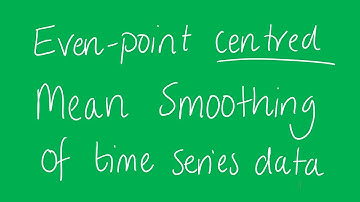 Even-point centred
Mean Smoothing
of time series data